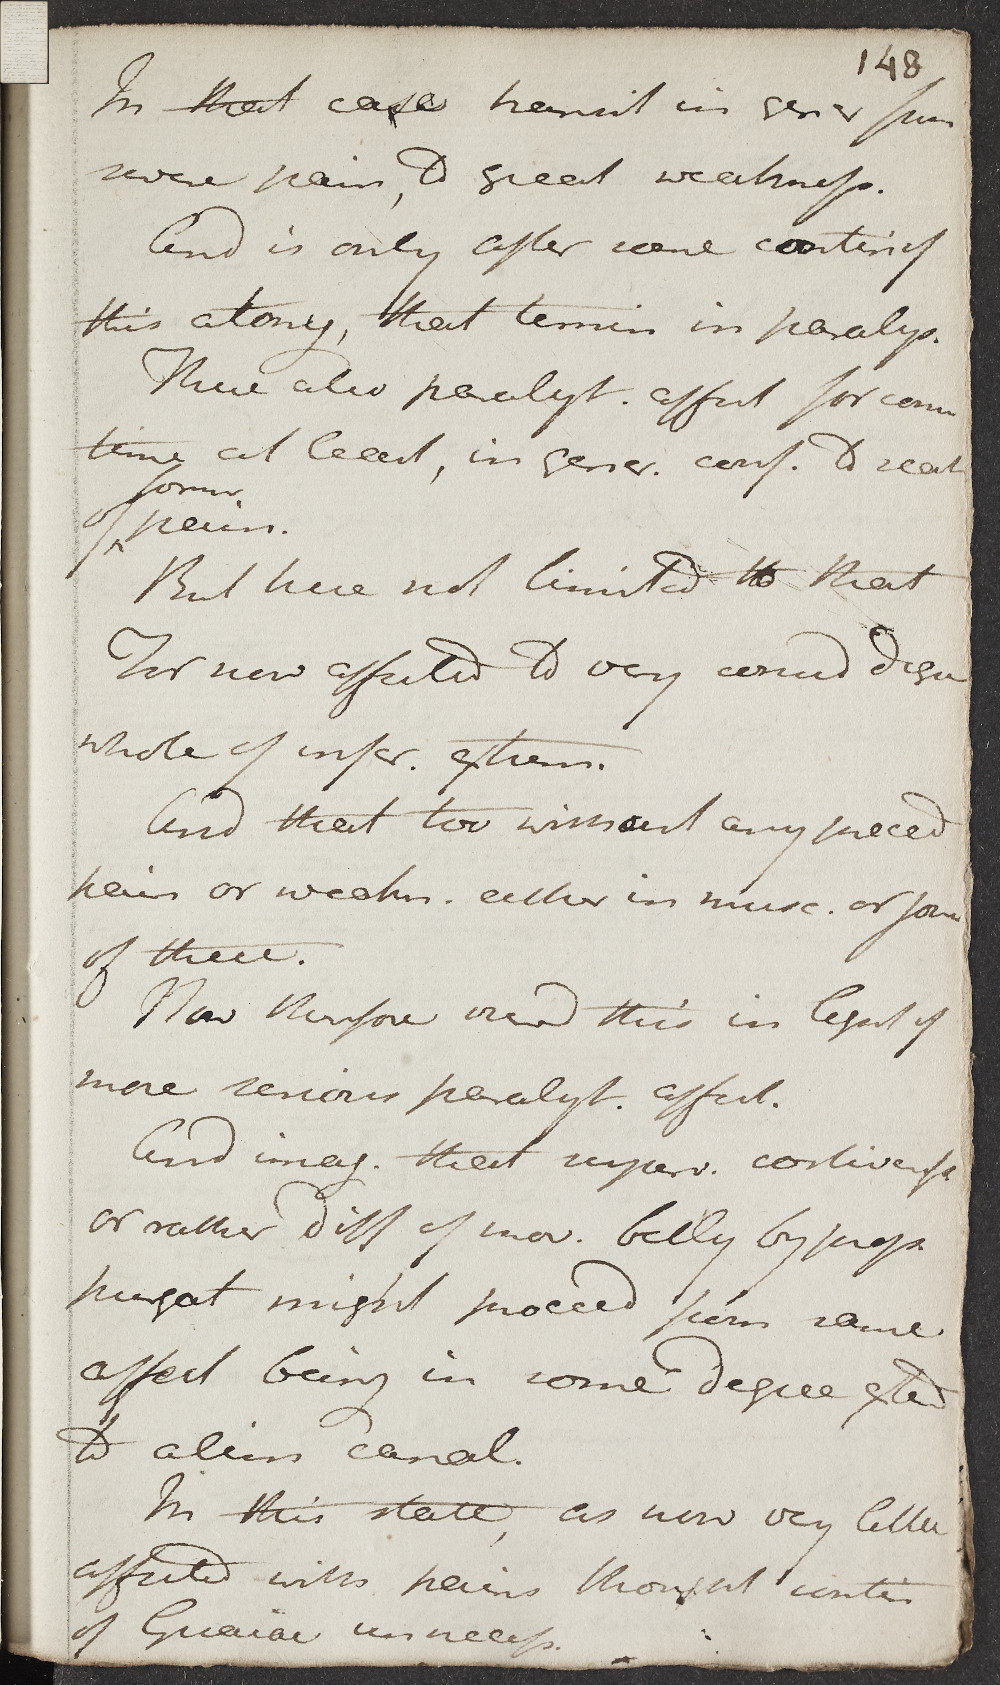 148
In that case transit in gener from
severe pain, to great weakness.
And is only after some contin of
this atony, that termin in paralys.
There also paralyt. affect for some
time at least, in gener. conf. to seat
of former pain.
But here not limited to that
For now affected to very consid degree
whole of infer. extrem.
And that too without any preced
pain or weakn. either in musc. or join
of these.
Now therefore view this in light of
more serious paralyt. affect.
And imag. that superv. costiveness
or rather diff of mov. belly by
purgat might proceed from same
affect being in some degree exted
to alim canal.
In this state, as now very little
affected with pains thought contin
of Guaiac unnecess.